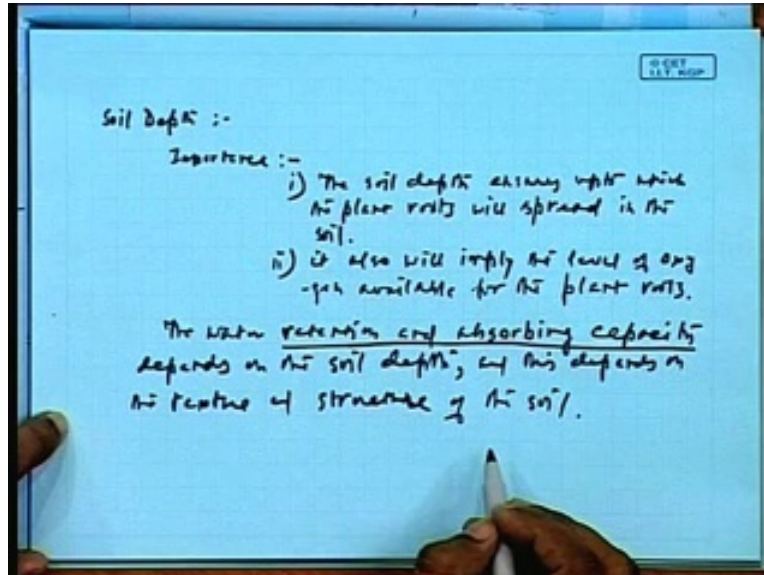 © CET
I.I.T. KGP
Soil Depth :-
Importance :-
i) The soil depth ensures upto which
the plant roots will spread in the
soil.
ii) it also will imply the level of oxy
-gen available for the plant roots.
The water retention and absorbing capacity
depends on the soil depth, and this depends on
the texture of structure of the soil.